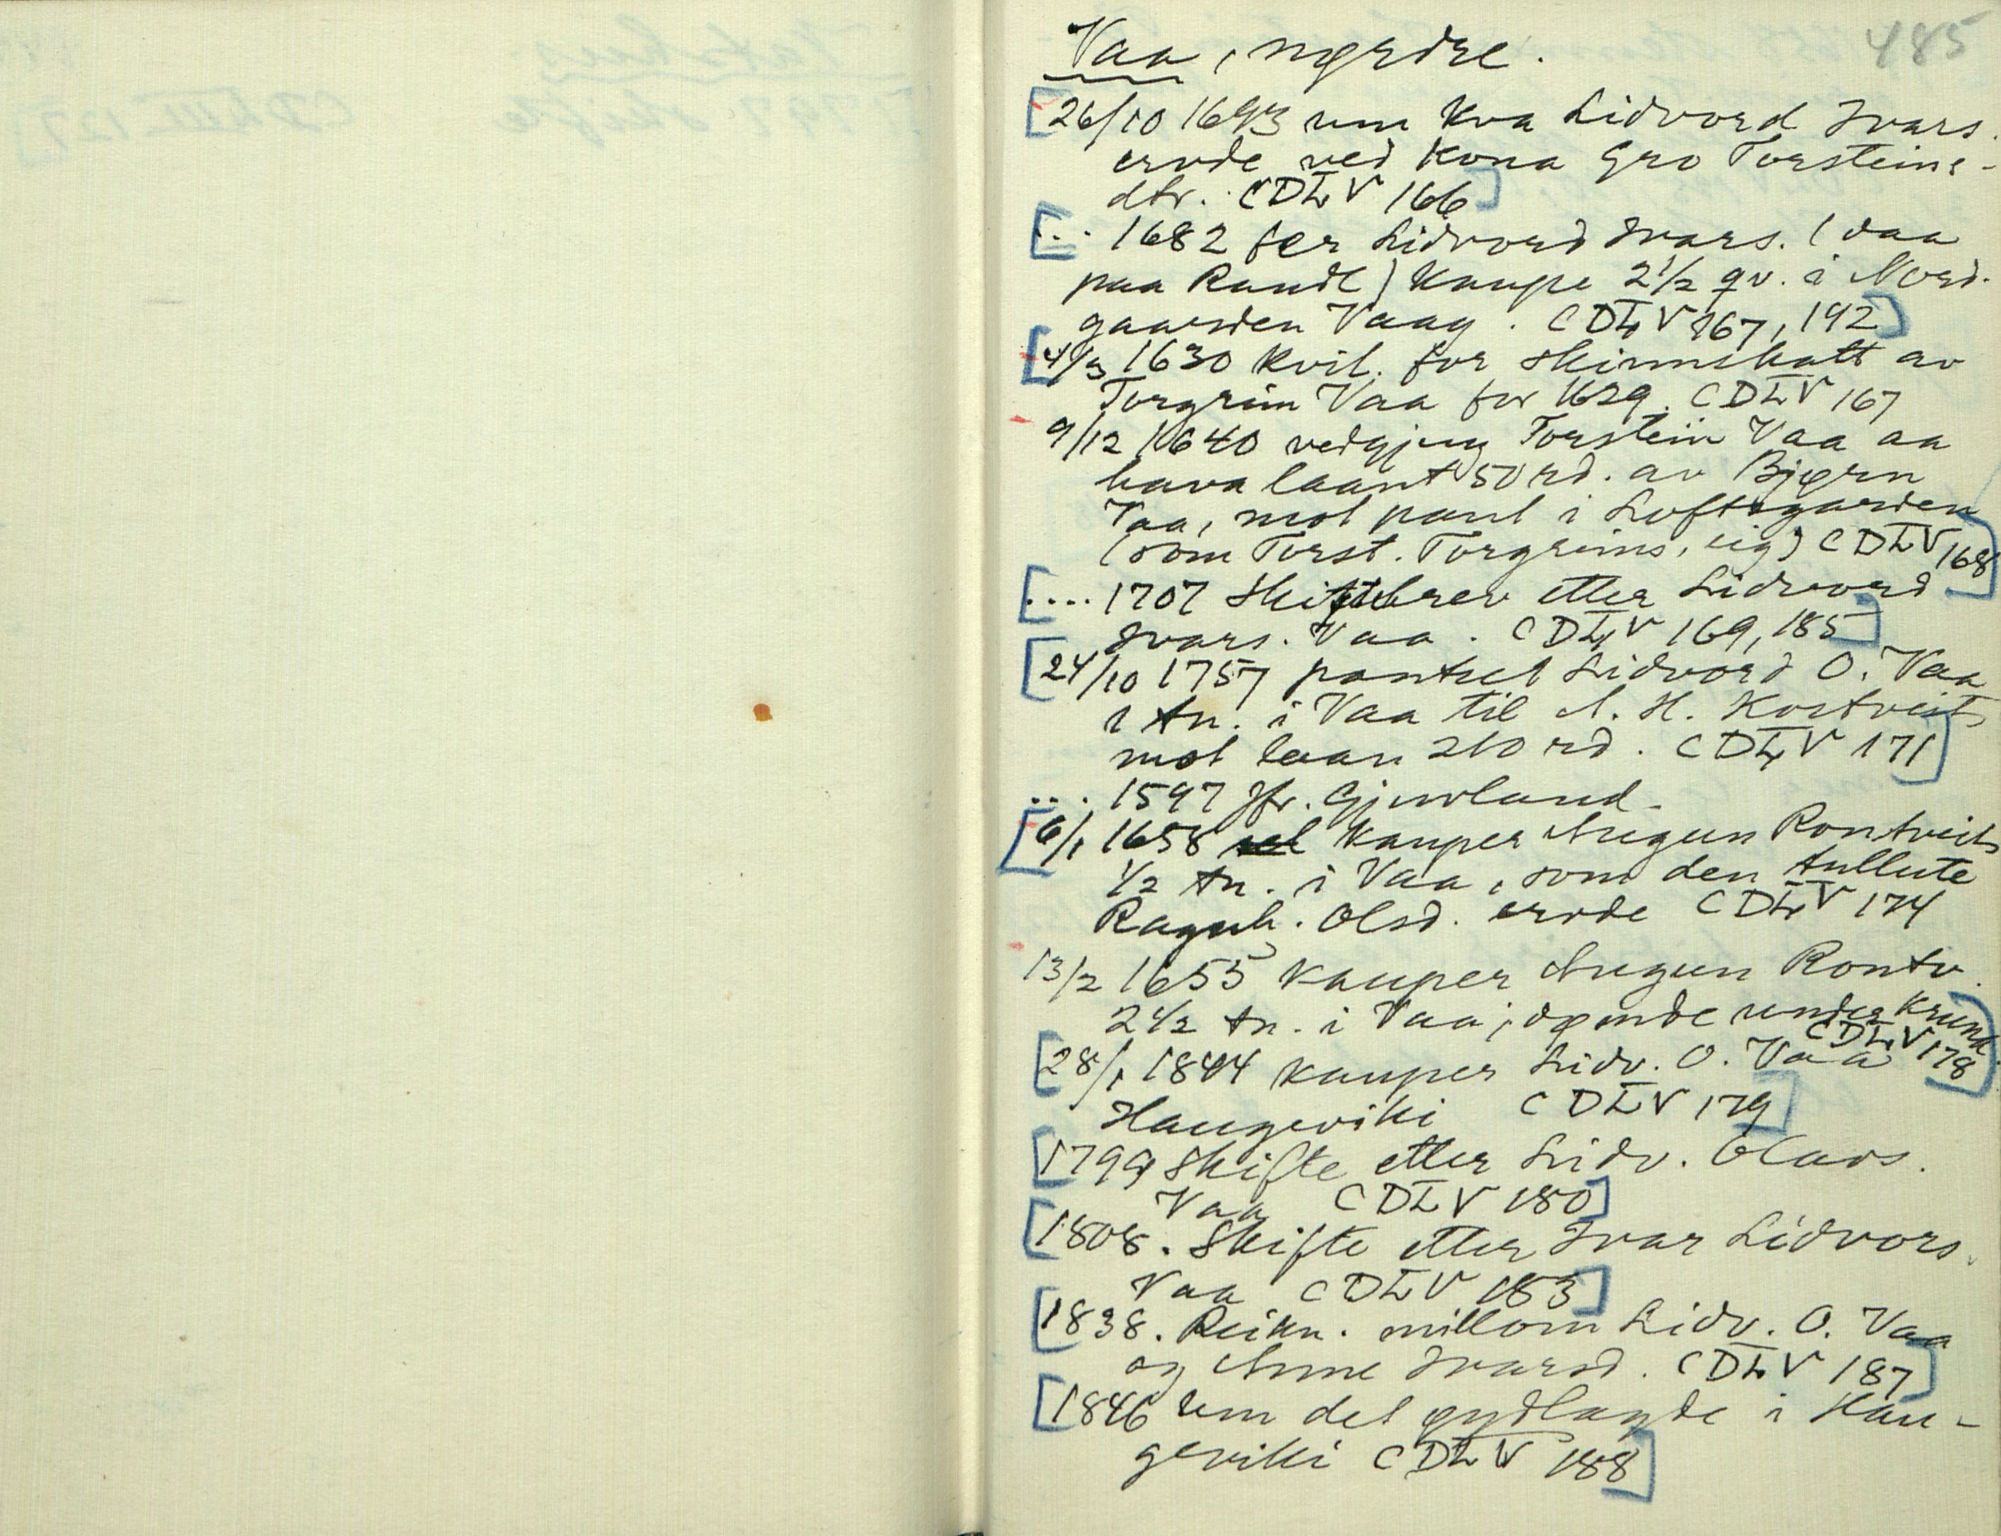 485
Vaa, nørdre.
26/10 1693 um kva Lidvord Ivars.
ervde ved kona Gro Torsteins-
dtr. CDLV 166
... 1682 fær Lidvord Ivars. (daa
paa Randl) kaupe 2½ qv. i Nord-
gaarden Vaag. CDLV 167, 192
4/3 1630 kvit. for skinnskatt av
Torgrim Vaa for 1629. CDLV 167
9/12 1640 vedgjeng Torstein Vaa aa
hava laant 50 rd. av Bjørn
Vaa, mot pant i Loftsgarden
(som Torst. Torgrims. eig) CDLV 168
.... 1707 Skiftebrev etter Lidvord
Ivars. Vaa. CDLV 169, 185
24/10 1757 pantset Lidvord O. Vaa
1 tn. i Vaa til A. H. Kostveit,
mot laan 210 rd. CDLV 171
... 1597 Jfr. Gjuvland.
6/1 1658 kauper Augun Rontveit
½ tn. i Vaa, som den tullute
Ragnh. Olsd. ervde CDLV 174
13/2 1655 kauper Augun Rontv.
2½ tn. i Vaa; dømde under Kruna.
CDLV 178
28/1 1844 kauper Lidv. O. Vaa
Haugeviki CDLV 179
1799 Skifte etter Lidv. Olavs.
Vaa CDLV 180
1808. Skifte etter Ivar Lidvors.
Vaa CDLV 183
1838. Reikn. millom Lidv. O. Vaa
og Anne Ivarsd. CDLV 187
1846 um det øydlagde i Hau-
geviki CDLV 188